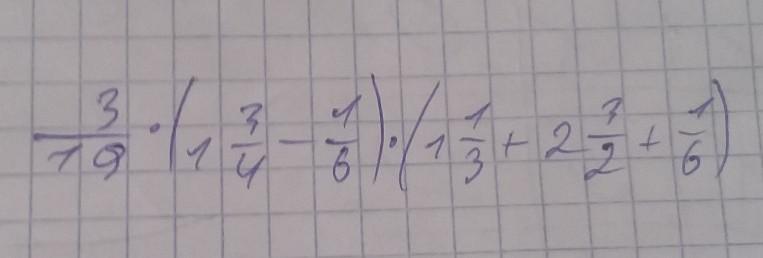 3/19 · (1 3/4 - 1/6) · (1 1/3 + 2 3/2 + 1/6)